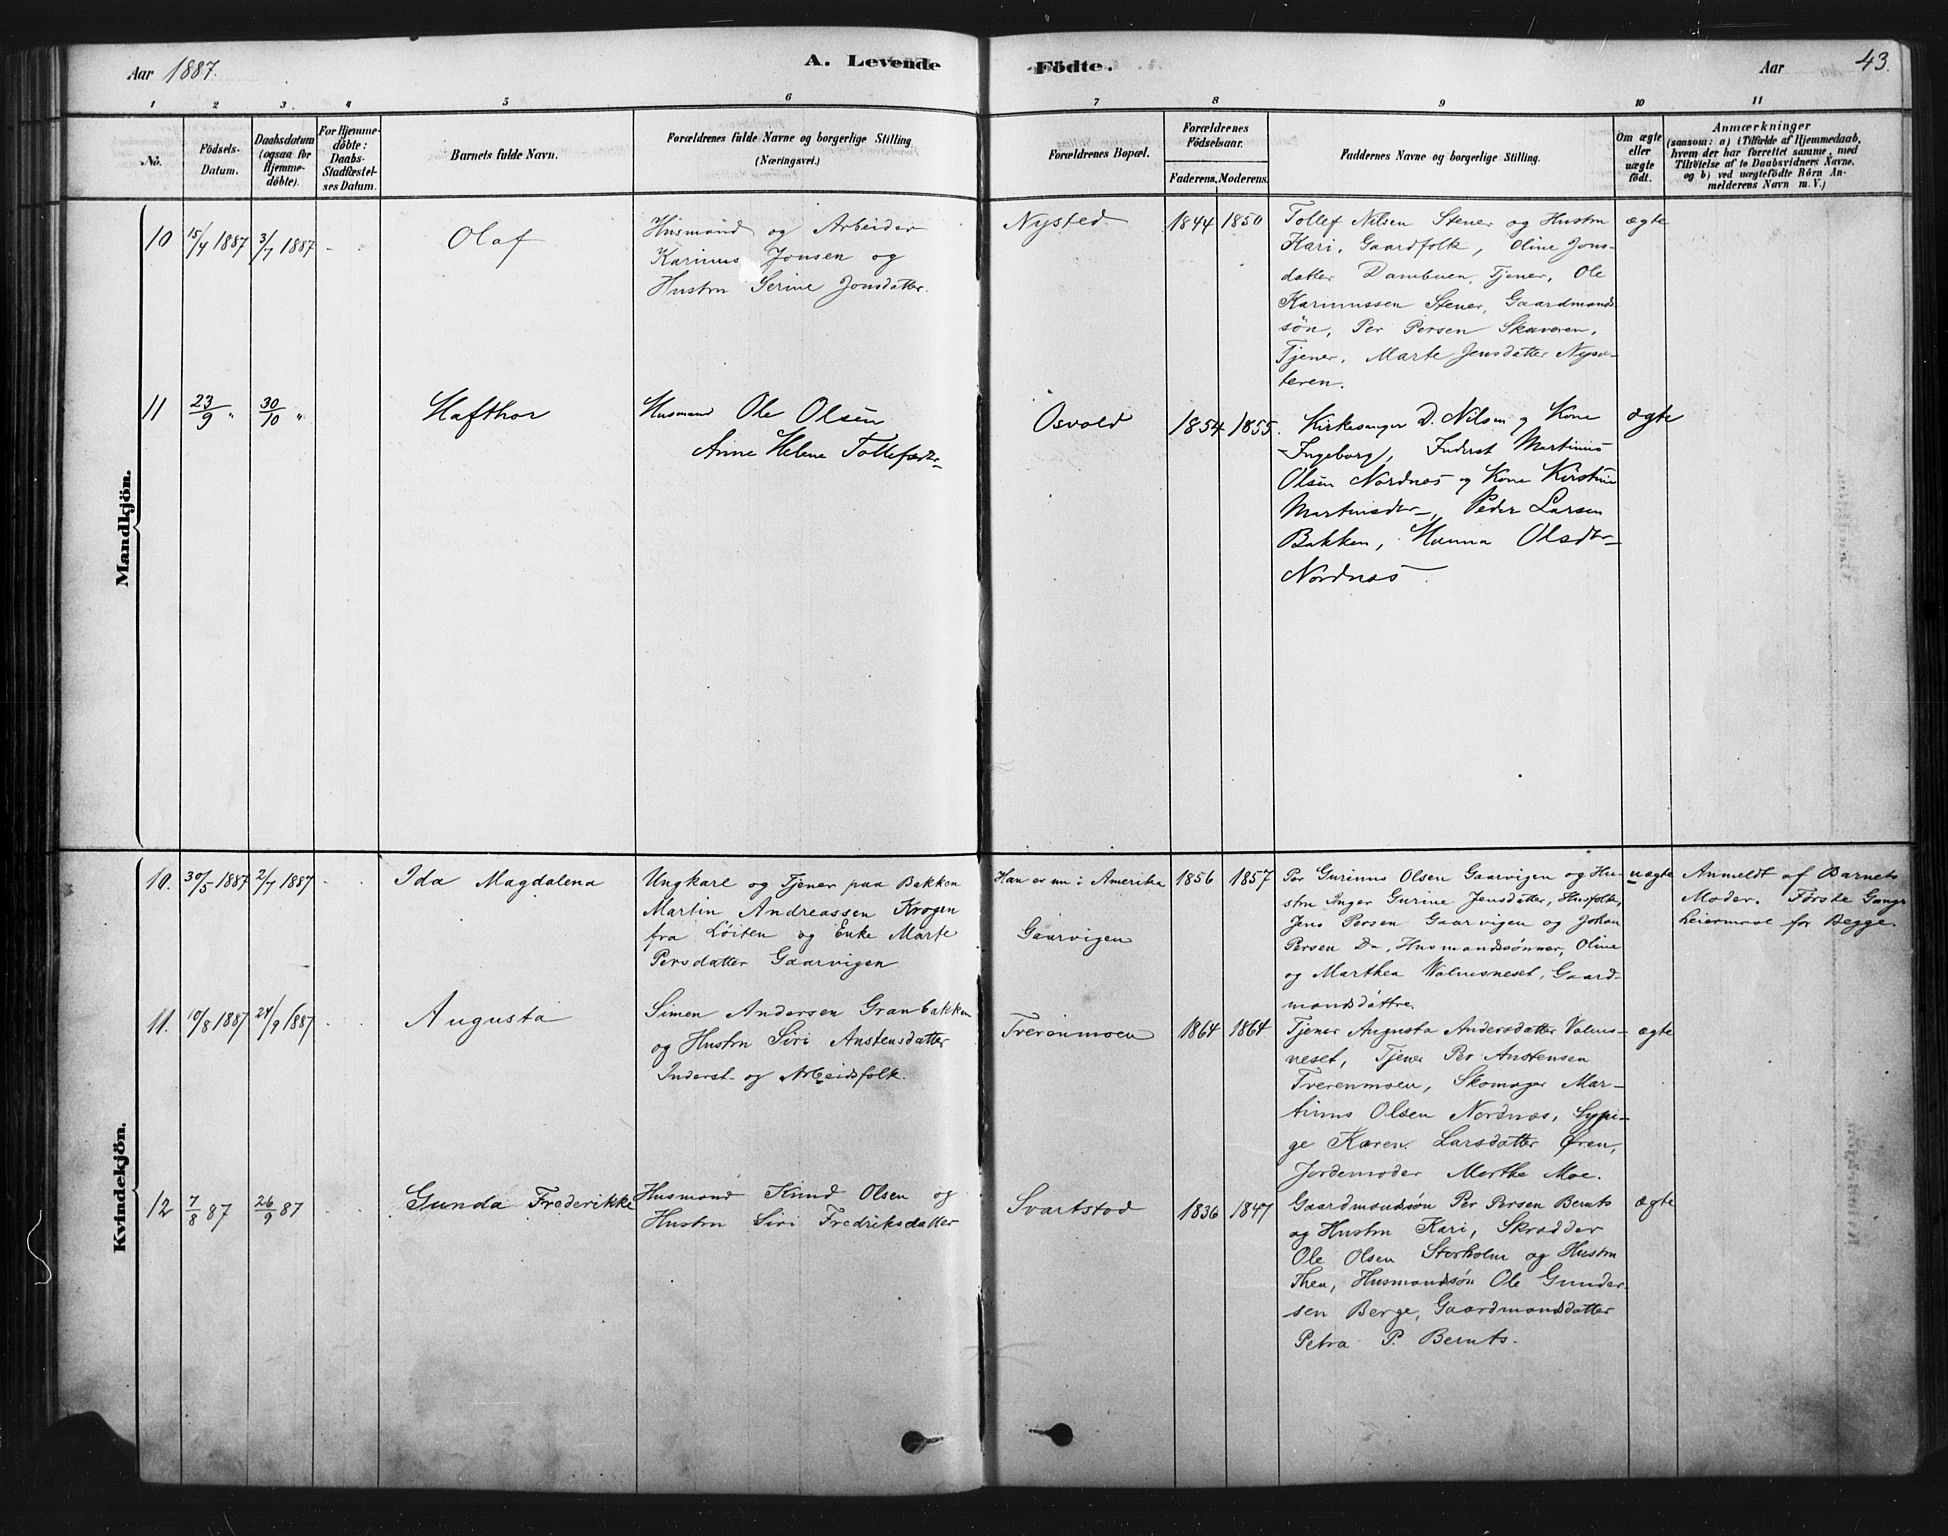 Aar 1887.
A. Levende
Födte.
Aar
43.
1 2 3. 4 5 6 7 8 9 10 11
No.
Födsels-
Datum.
Daabsdatum
(ogsaa for
Hjemme-
döbte).
For Hjemme-
döbte:
Daabs-
Stadfæstel-
ses Datum.
Barnets fulde Navn.
Forældrenes fulde Navne og borgerlige Stilling
(Næringsvei.)
Forældrenes Bopæl.
Forældrenes
Födselsaar.
Faderens. Moderens.
Faddernes Navne og borgerlige Stilling.
Om ægte
eller
uægte
födt.
Anmærkninger
(saasom: a) i Tilfælde af Hjemmedaab,
hvem der har forrettet samme, med
Tilföielse af to Daabsvidners Navne,
og b) ved uægtefödte Börn An-
melderens Navn m. V.)
Mandkjön.
10 15/4 1887 3/7 1887 - Olaf
Husmand og Arbeider
Karinus Jonsen og
Hustru Gerine Jonsdatter.
Nysted 1844 1850
Tollef Nilsen Stener og Hustru
Kari, Gaardfolk, Oline Jons-
datter Dambuen, Tjener, Ole
Karinussen Stener, Gaardmands-
søn, Per Persen Skaveren,
Tjener, Marte Jensdatter Nysæ-
teren.
ægte
11 23/9 " 30/10 " Hafthor
Husmand Ole Olsen
Anne Helene Tollefsdtr
Osvold 1854 1855.
Kirkesanger D. Nilsen og Kone
Ingeborg, Inderst Martinius
Olsen Nordnæs og Kone Kirstine
Martinsdtr, Peder Larsen
Bakken, Hanna Olsdtr
Nordnæs.
ægte
Kvindekjön.
10. 30/5 1887 2/7 1887 - Ida Magdalena
Ungkarl og Tjener paa Bakken
Martin Andreassen Krogen
fra Løiten og Enke Marte
Persdatter Gaarvigen
Han er nu i Amerika
Gaarvigen
1856 1857
Per Gurinus Olsen Gaarvigen og Hu-
stru Inger Gurine Jensdatter, Husfolk,
Jens Persen Gaarvigen og Johan
Persen Do, Husmandssønner, Oline
og Marthea Valmsneset, Gaard-
mandsdøttre.
uægte
Anmeldt af Barnets
Moder. Første Gangs
Leiermaal for Begge.
11. 10/8 1887 24/9 1887 - Augusta
Simen Andersen Granbakken
og Hustru Siri Anstensdatter
Inderst- og Arbeidsfolk.
Tverenmoen 1864 1864
Tjener Augusta Andersdatter Valms-
neset, Tjener Per Anstensen
Tverenmoen, Skomager Mar-
tinus Olsen Nordnæs, Sypi-
ge Karen Larsdatter Øren,
Jordemoder Marthe Moe.
ægte
12 7/8 87 26/9 87 - Gunda Frederikke
Husmand Knud Olsen og
Hustru Siri Fredriksdatter
Svartstad 1836 1847
Gaardmandssøn Per Persen Bernts
og Hustru Kari, Skrædder
Ole Olsen Storholm og Hustru
Thea, Husmandssøn Ole Gunder-
sen Berge, Gaardmandsdatter
Petra P. Bernts.
ægte